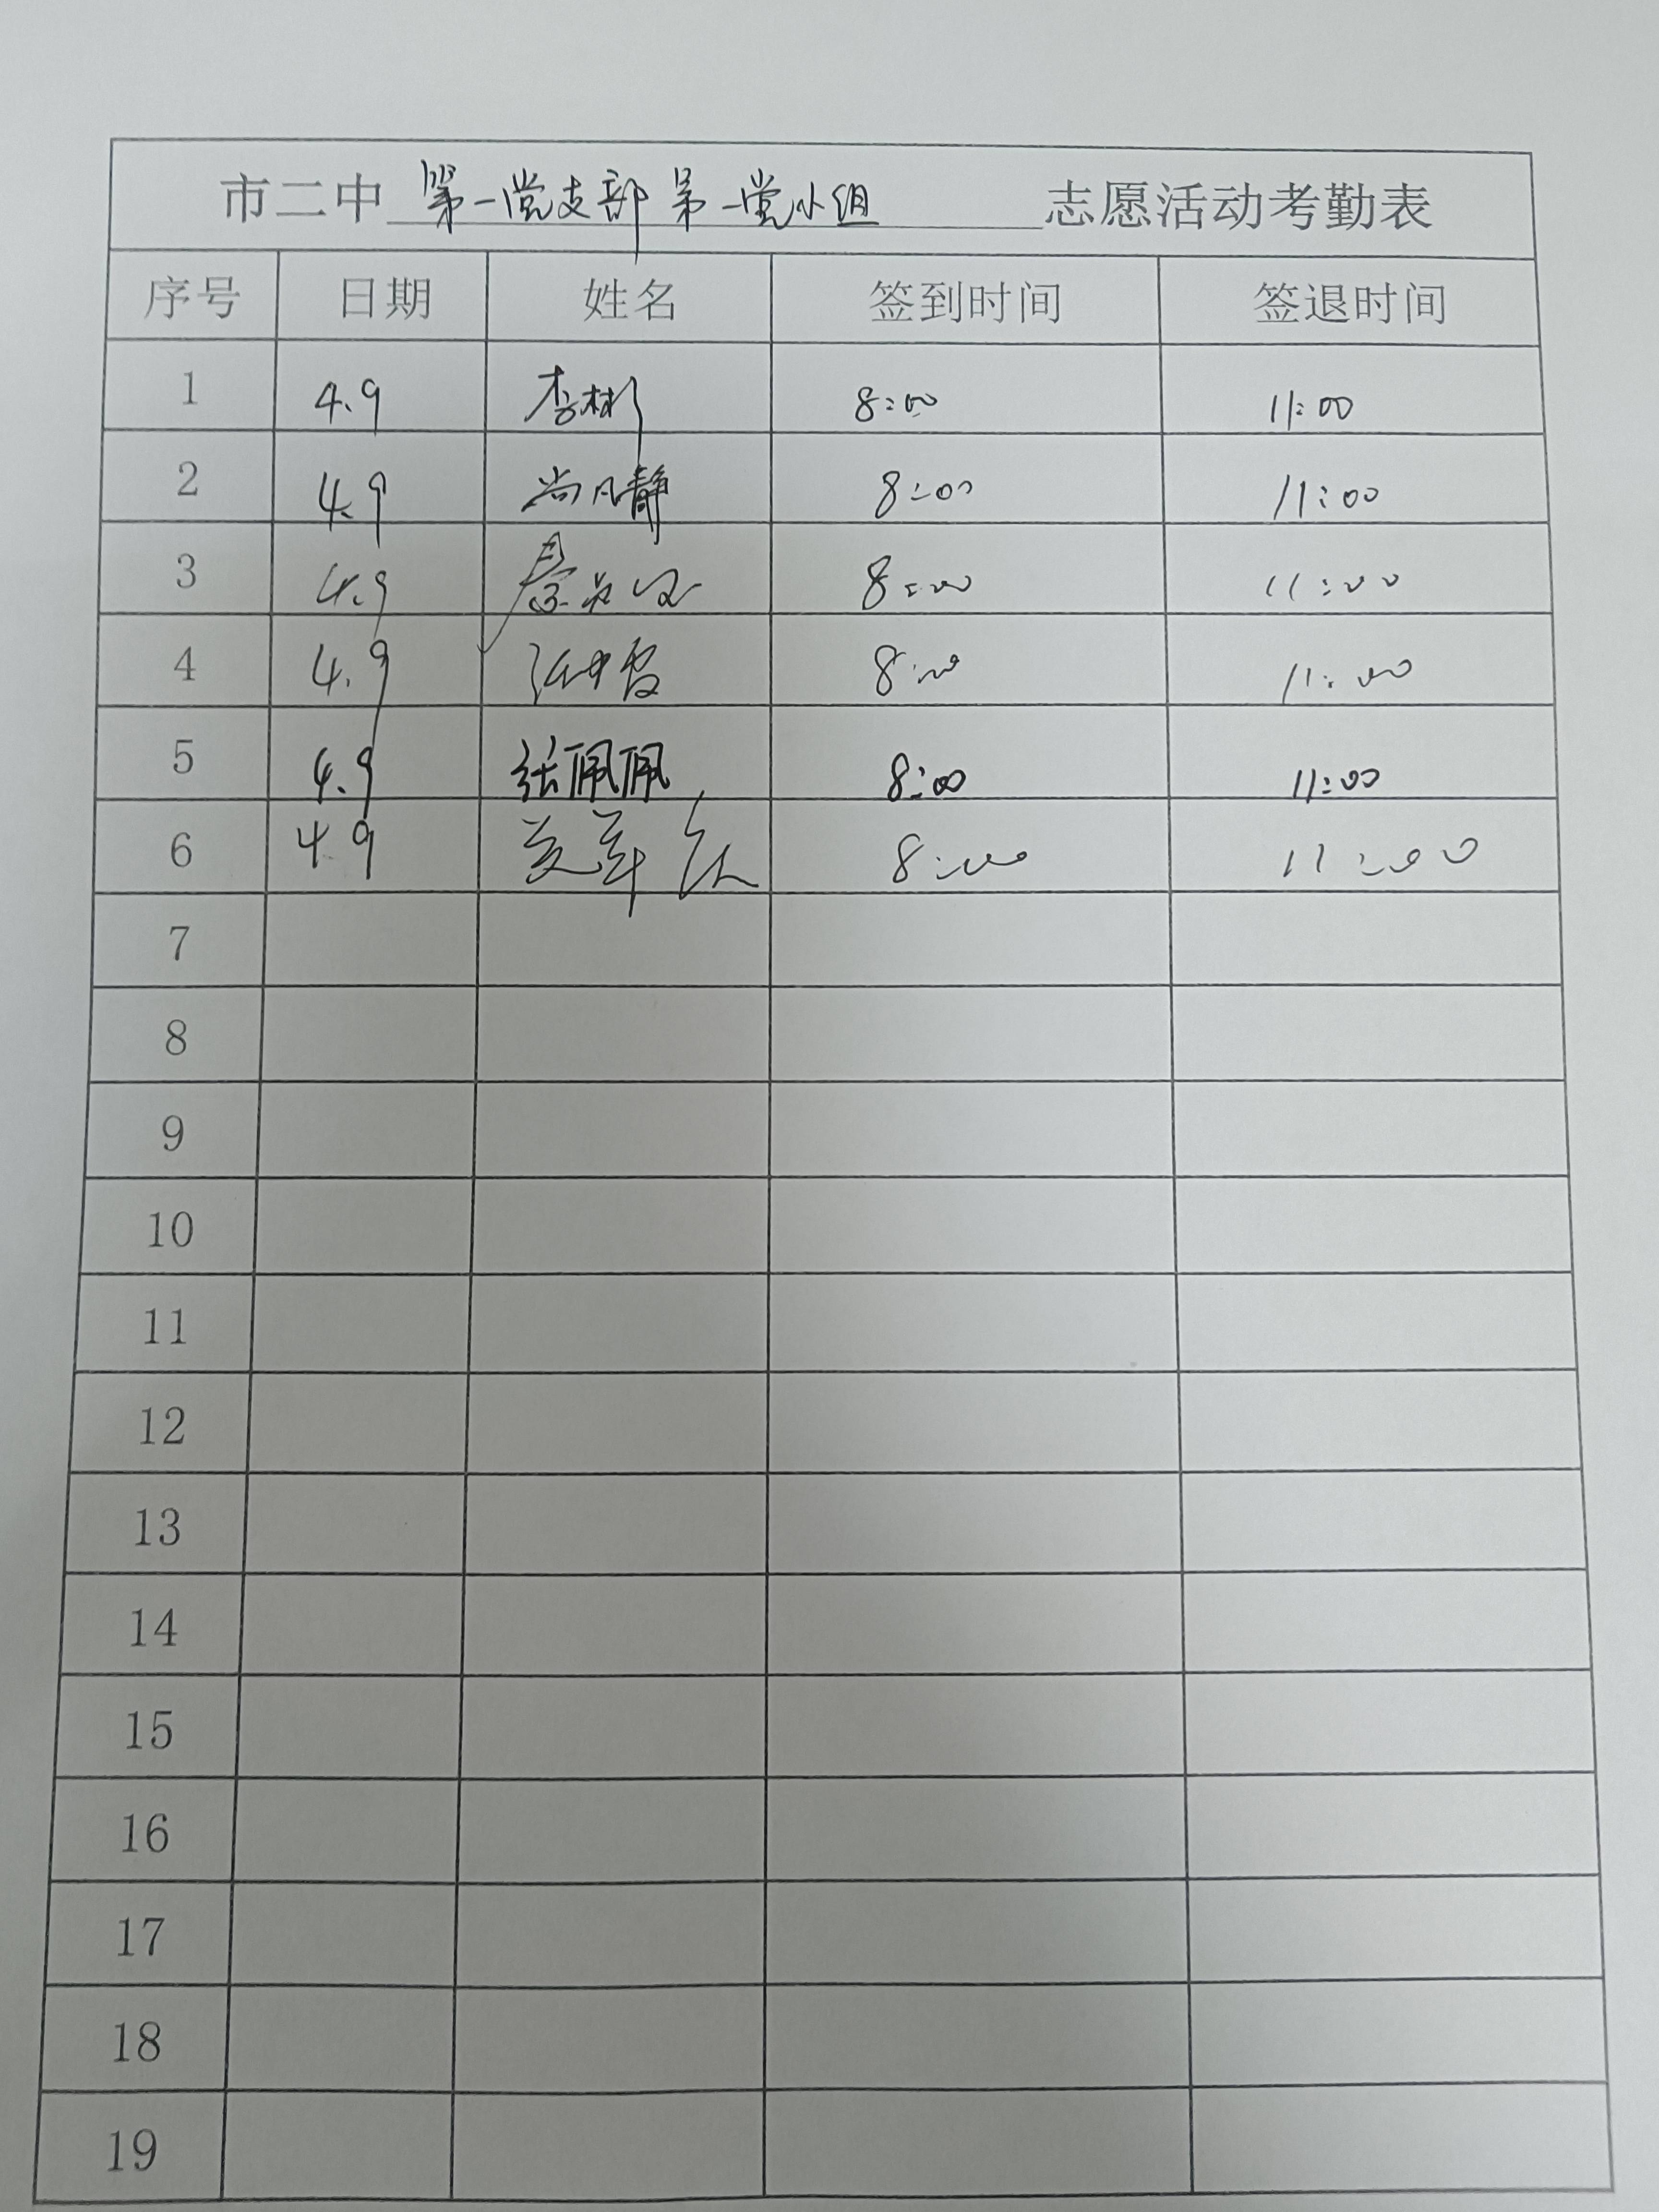 市二中 第一党支部 第一党小组 志愿活动考勤表
序号 日期 姓名 签到时间 签退时间
1 4.9 李彬 8:00 11:00
2 4.9 尚凡静 8:00 11:00
3 4.9 8:00 11:00
4 4.9 8:00 11:00
5 4.9 张佩佩 8:00 11:00
6 4.9 8:00 11:00
7
8
9
10
11
12
13
14
15
16
17
18
19